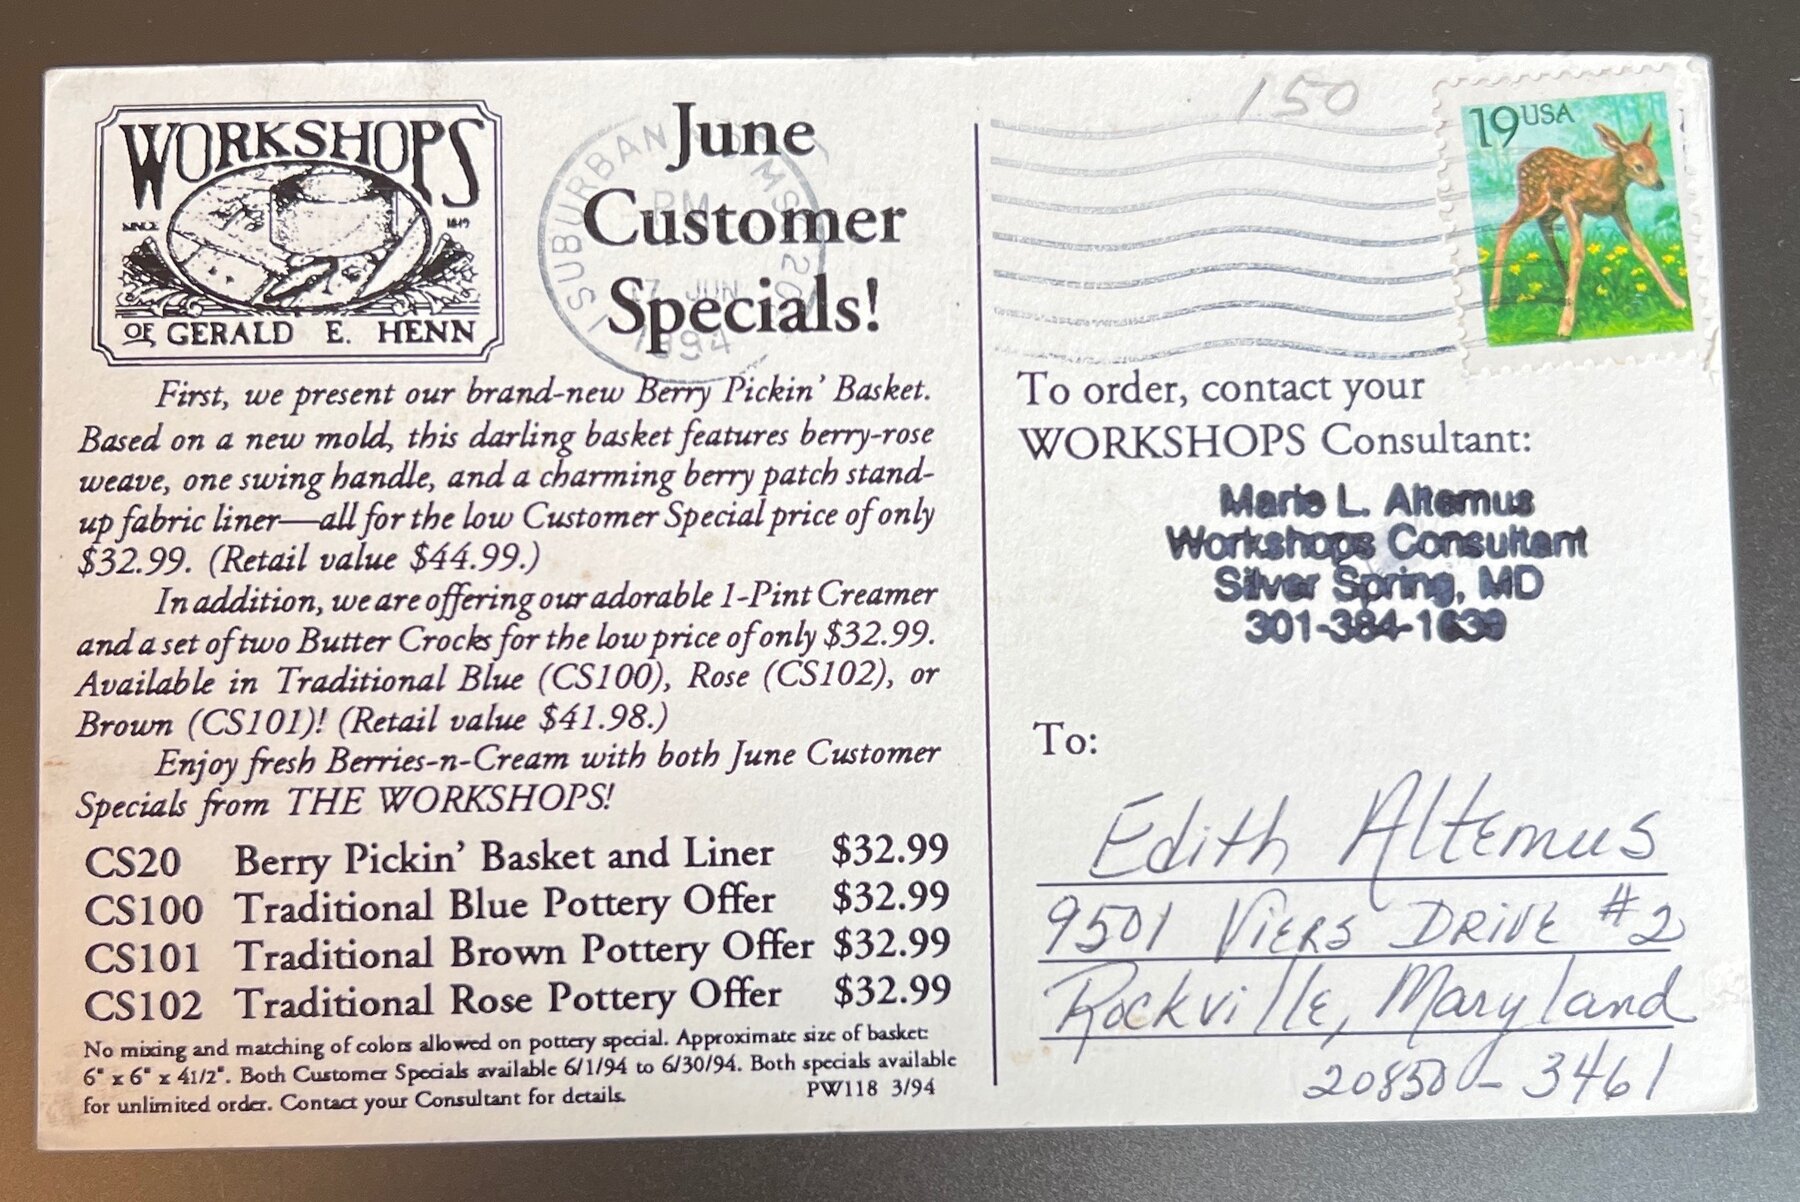 WORKSHOPS
SINCE 1849
OF GERALD E. HENN
June
Customer
Specials!
SUBURBAN MD MSC 20
PM
17 JUN
1994
First, we present our brand-new Berry Pickin' Basket.
Based on a new mold, this darling basket features berry-rose
weave, one swing handle, and a charming berry patch stand-
up fabric liner—all for the low Customer Special price of only
$32.99. (Retail value $44.99.)
In addition, we are offering our adorable 1-Pint Creamer
and a set of two Butter Crocks for the low price of only $32.99.
Available in Traditional Blue (CS100), Rose (CS102), or
Brown (CS101)! (Retail value $41.98.)
Enjoy fresh Berries-n-Cream with both June Customer
Specials from THE WORKSHOPS!
CS20 Berry Pickin' Basket and Liner $32.99
CS100 Traditional Blue Pottery Offer $32.99
CS101 Traditional Brown Pottery Offer $32.99
CS102 Traditional Rose Pottery Offer $32.99
No mixing and matching of colors allowed on pottery special. Approximate size of basket:
6" x 6" x 4 1/2". Both Customer Specials available 6/1/94 to 6/30/94. Both specials available
for unlimited order. Contact your Consultant for details. PW118 3/94
150
19 USA
To order, contact your
WORKSHOPS Consultant:
Marie L. Altemus
Workshops Consultant
Silver Spring, MD
301-384-1639
To:
Edith Altemus
9501 Viers Drive #2
Rockville, Maryland
20850-3461